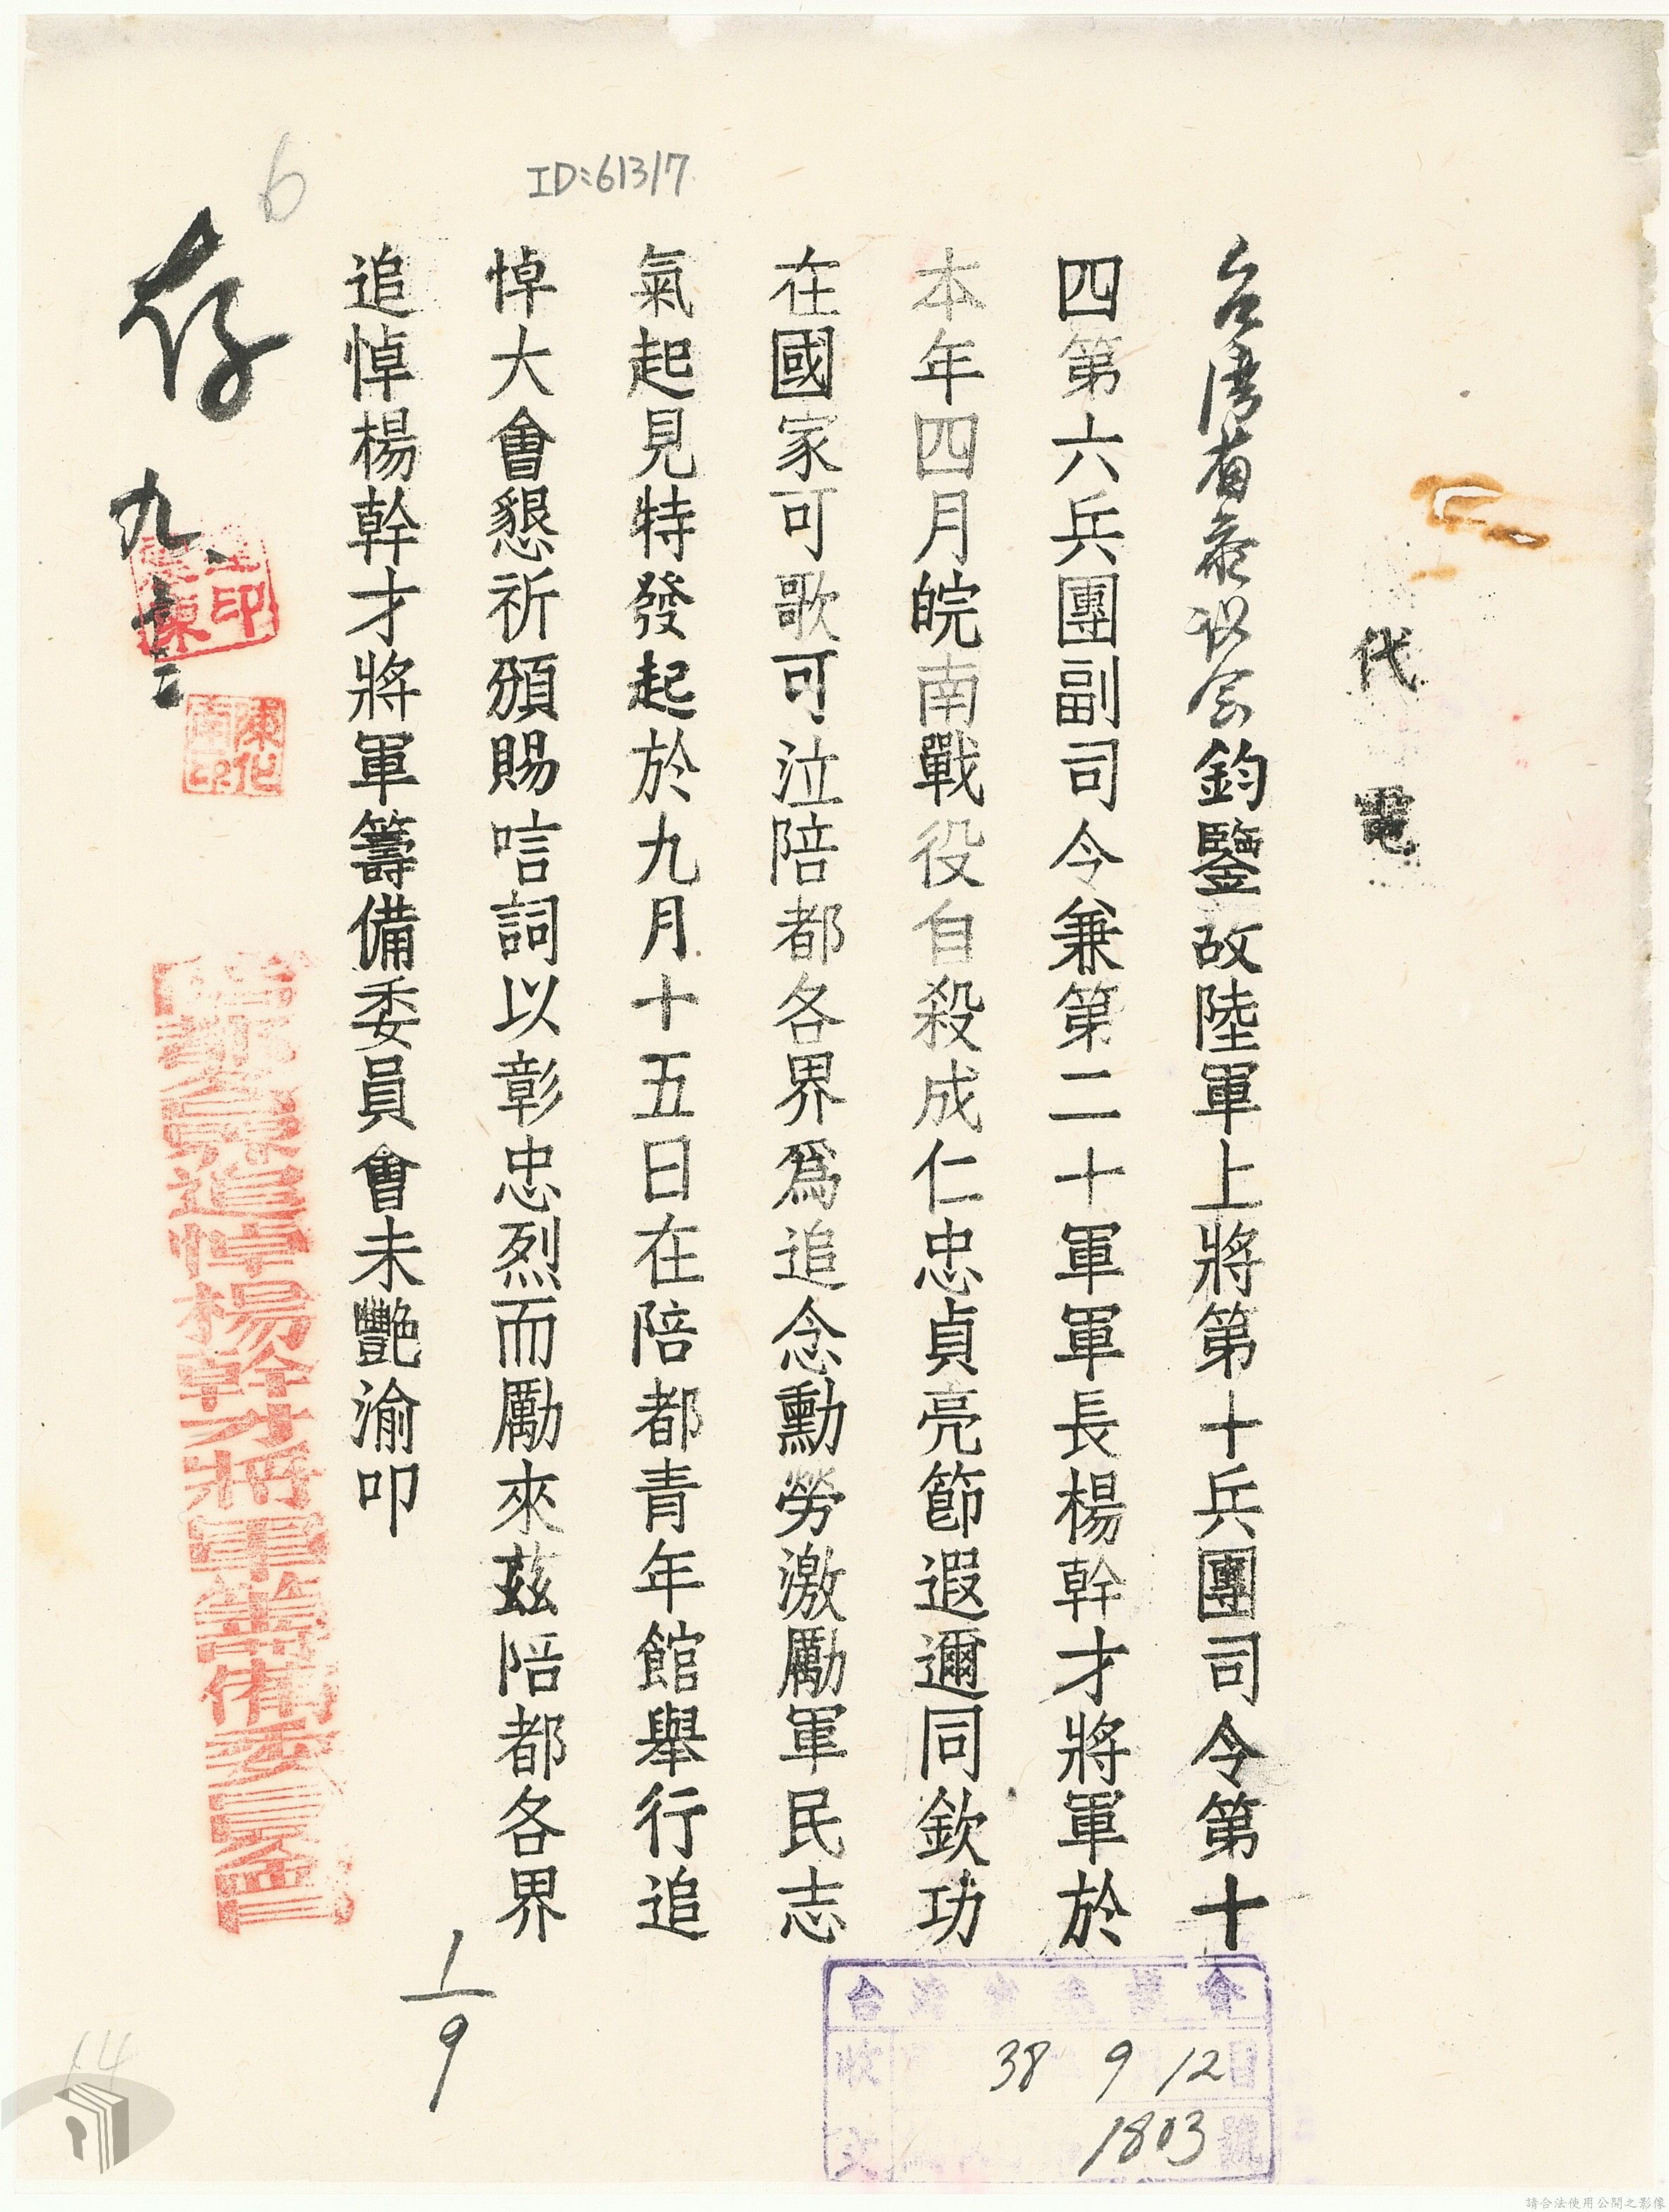 代電
台灣省參議会鈞鑒故陸軍上將第十兵團司令第十
四第六兵團副司令兼第二十軍軍長楊幹才將軍於
本年四月皖南戰役自殺成仁忠貞亮節遐邇同欽功
在國家可歌可泣陪都各界爲追念勳勞激勵軍民志
氣起見特發起於九月十五日在陪都青年館舉行追
悼大會懇祈頒賜唁詞以彰忠烈而勵來茲陪都各界
追悼楊幹才將軍籌備委員會未艷渝叩
陪都各界追悼楊幹才將軍籌備委員會
存
九、十二
6
ID:61317
1/9
台灣省參議會
收 38 9 12 日
文 1803 號
14
請合法使用公開之影像